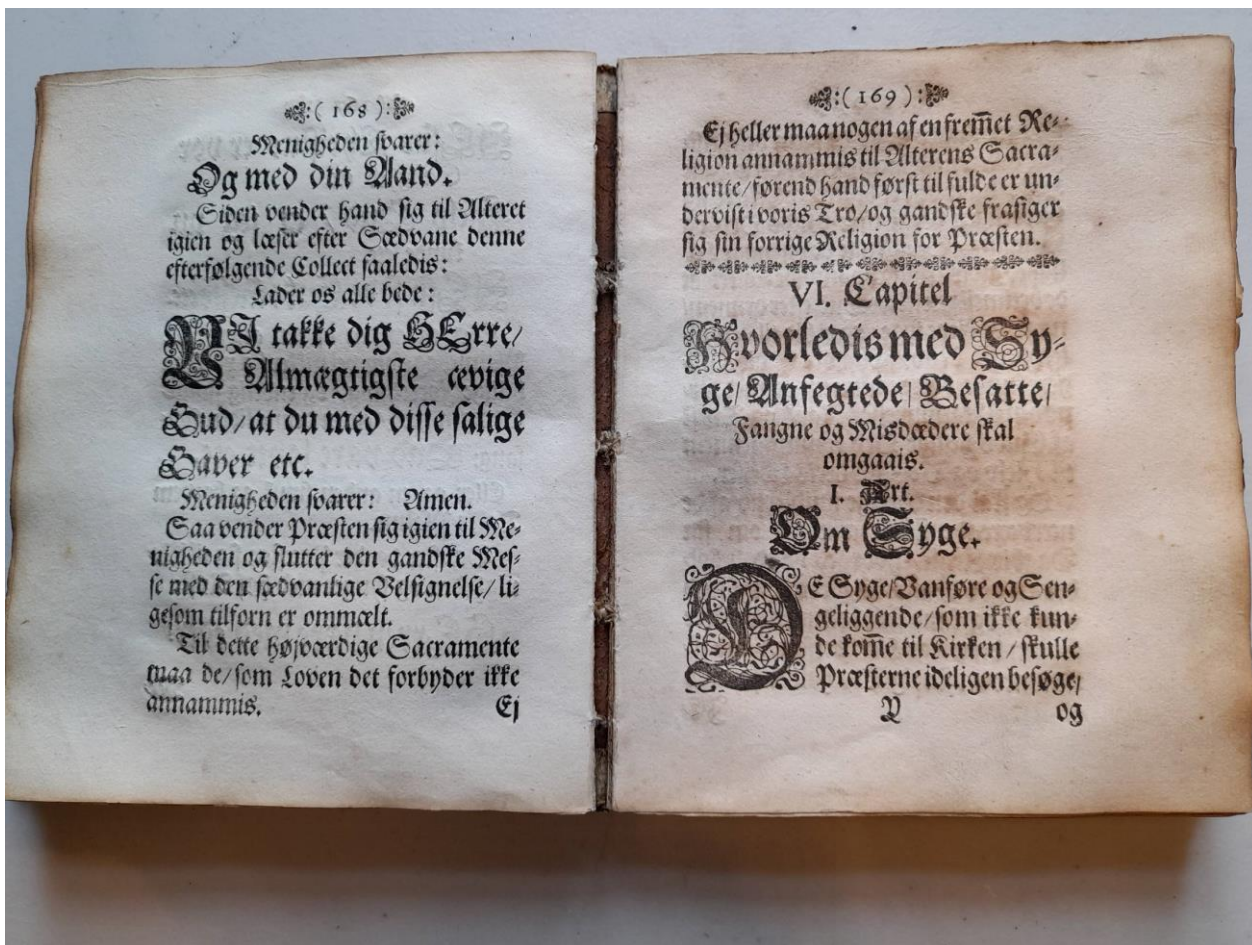 :( 168 ):
Menigheden svarer:
Og med din Aand.
Siden vender hand sig til Alteret
igien og læser efter Sædvane denne
efterfølgende Collect saaledis:
Lader os alle bede:
VI takke dig HErre/
Almægtigste ævige
Gud/ at du med disse salige
Gaver etc.
Menigheden svarer: Amen.
Saa vender Præsten sig igien til Me-
nigheden og slutter den gandske Mes-
se med den sædvanlige Velsignelse/ li-
gesom tilforn er ommælt.
Til dette højværdige Sacramente
maa de/ som Loven det forbyder ikke
annammis. Ej
:( 169 ):
Ej heller maa nogen af en frem̅et Re-
ligion annammis til Alterens Sacra-
mente/ førend hand først til fulde er un-
dervist i voris Tro/ og gandske frasiger
sig sin forrige Religion for Præsten.
VI. Capitel
Hvorledis med Sy-
ge/ Anfegtede/ Besatte/
Fangne og Misdædere skal
omgaais.
I. Art.
Om Syge.
DE Syge/ Vanføre og Sen-
geliggende/ som ikke kun-
de kom̅e til Kirken/ skulle
Præsterne ideligen besøge/
Y og